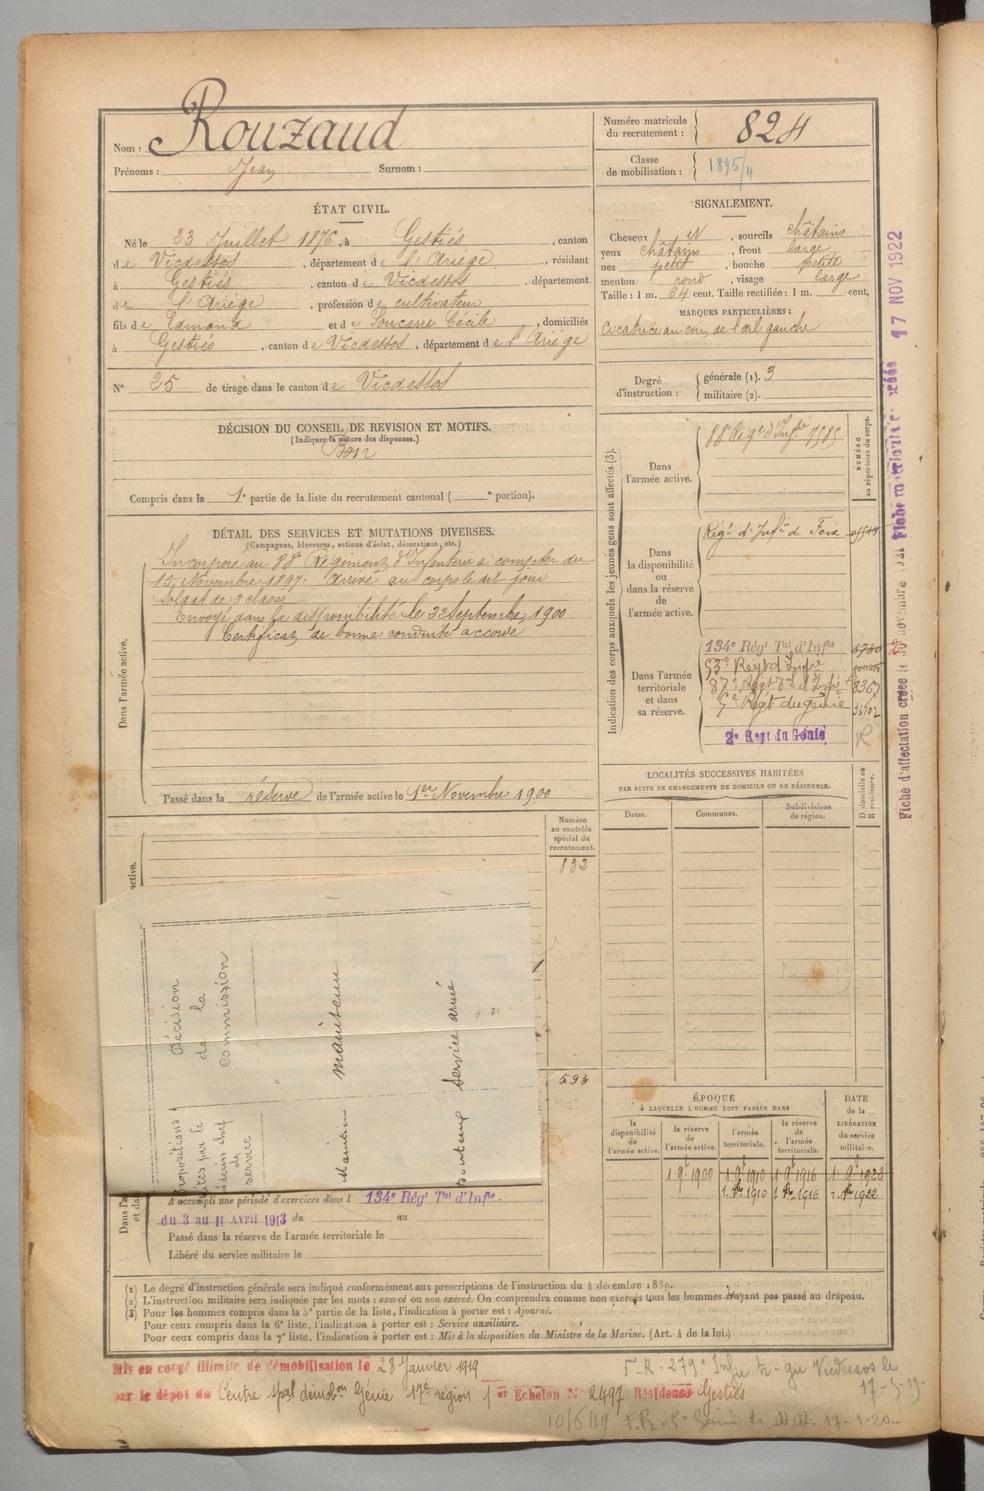 Nom : Rouzaud
Prénoms : Jean Surnom :
Numéro matricule du recrutement : 824
Classe de mobilisation : 1895/4
ÉTAT CIVIL.
Né le 23 Juillet 1876, à Gestiés, canton
de Vicdessos, département de l'Ariège, résidant
à Gestiés, canton de Vicdessos, département
de l'Ariège, profession de cultivateur
fils de Edmond et de Soucarre Cécile, domiciliés
à Gestiés, canton de Vicdessos, département de l'Ariége
N° 25 de tirage dans le canton de Vicdessos
SIGNALEMENT.
Cheveux et, sourcils châtains
yeux châtains, front large
nez petit, bouche petite
menton rond, visage large
Taille : 1 m. 64 cent. Taille rectifiée : 1 m. cent.
MARQUES PARTICULIÈRES :
Cicatrice au coin de l'œil gauche
Degré d'instruction : générale (1). 3
militaire (2).
DÉCISION DU CONSEIL DE REVISION ET MOTIFS.
(Indiquer la nature des dispenses.)
Bon
Compris dans la 1e partie de la liste du recrutement cantonal ( e portion).
DÉTAIL DES SERVICES ET MUTATIONS DIVERSES.
(Campagnes, blessures, actions d'éclat, décorations, etc.)
Dans l'armée active.
Incorporé au 88e Régiment d'Infanterie à compter du
15 Novembre 1897. Arrivé au corps le dit jour
Soldat de 2e classe
Envoyé dans la disponibilité le 22 Septembre 1900
Certificat de bonne conduite accordé
Passé dans la réserve de l'armée active le 1er Novembre 1900
Indication des corps auxquels les jeunes gens sont affectés (3).
NUMÉRO au répertoire du corps.
Dans l'armée active.
88e Rég. d'Infie 7585
Dans la disponibilité ou dans la réserve de l'armée active.
Régt d'Infie de Foix
Dans l'armée territoriale et dans sa réserve.
134e Régt Tal d'Infie
53e Regt d'Infie
87e Régt Tal d'Infie 8367
5e Régt du génie
2e Regt du Génie
LOCALITÉS SUCCESSIVES HABITÉES
PAR SUITE DE CHANGEMENTS DE DOMICILE OU DE RÉSIDENCE.
Dates.
Communes.
Subdivisions de région.
D domicile ou R résidence.
Numéro au contrôle spécial du recrutement.
832
593
Décision de la Commission
maintenu
Service armé
médecin chef de service
ÉPOQUE
À LAQUELLE L'HOMME DOIT PASSER DANS
la disponibilité de l'armée active.
la réserve de l'armée active.
l'armée territoriale.
la réserve de l'armée territoriale.
DATE de la LIBÉRATION du service militaire.
1 9bre 1900 1 9bre 1910 1 9bre 1916 1 9bre 1926
1916 1922
A accompli une période d'exercices dans l 134e Régt Tal d'Infie
du 3 au 11 Avril 1913 du au
Passé dans la réserve de l'armée territoriale le
Libéré du service militaire le
(1) Le degré d'instruction générale sera indiqué conformément aux prescriptions de l'instruction du 4 décembre 1889.
(2) L'instruction militaire sera indiquée par les mots : exercé ou non exercé. On comprendra comme non exercés tous les hommes n'ayant pas passé au drapeau.
(3) Pour les hommes compris dans la 5e partie de la liste, l'indication à porter est : Ajourné.
Pour ceux compris dans la 6e liste, l'indication à porter est : Service auxiliaire.
Pour ceux compris dans la 7e liste, l'indication à porter est : Mis à la disposition du Ministre de la Marine. (Art. 4 de la loi.)
Mis en congé illimité de démobilisation le 28 Janvier 1919
par le dépôt du Centre spal démobon Génie 17e région 1er Echelon N° 2497 Résidence Gestiés
17 NOV 1922
Fiche d'affectation créée le 30 novembre 1921
Fiche matricule créée